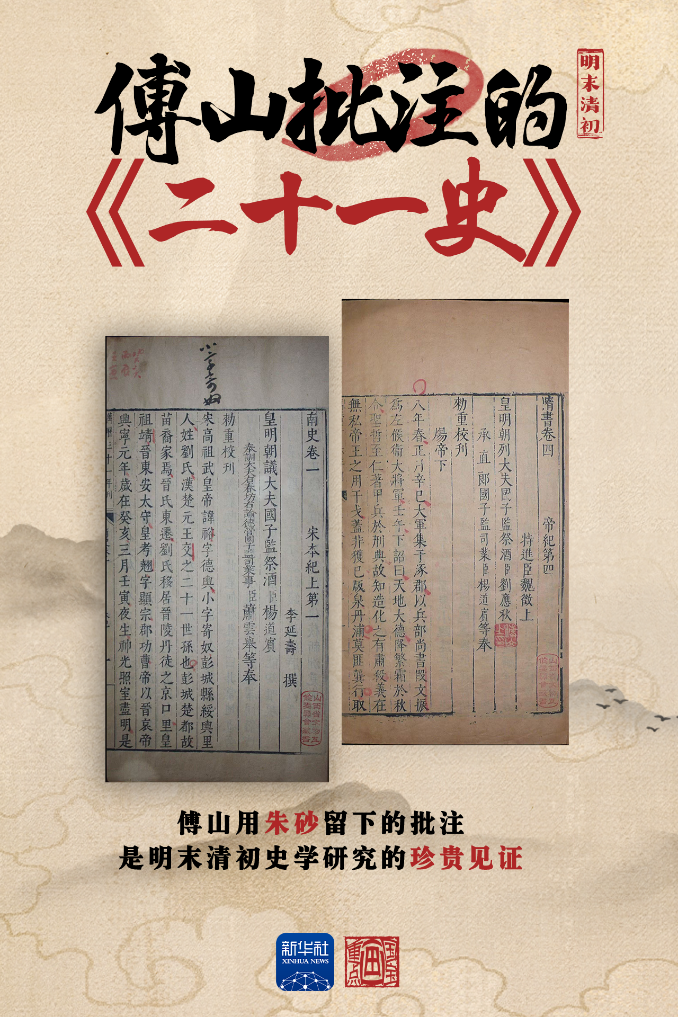 傅山批注的
明末清初
《二十一史》
小字寄奴
南史卷一 宋本紀上第一
李延壽 撰
皇明朝議大夫國子監祭酒臣楊道賓
等奉
勅重校刊
宋高祖武皇帝諱裕字德輿小字寄奴彭城縣綏輿里
人姓劉氏漢楚元王交之二十一世孫也彭城楚都故
苗裔家焉晉氏東遷劉氏移居晉陵丹徒之京口里皇
祖靖晉東安太守皇考翹字顯宗郡功曹帝以晉哀帝
興寧元年歲在癸亥三月壬寅夜生神光照室盡明是
隋書卷四 帝紀第四
特進臣魏徵上
皇明朝列大夫國子監祭酒臣劉應秋
承直郎國子監司業臣楊道賓等奉
勅重校刊
煬帝下
八年春正月辛巳大軍集于涿郡以兵部尚書段文振
爲左候衛大將軍壬午下詔曰天地大德降繁霜於秋
令聖哲至仁著甲兵於刑典故知造化之有肅殺義在
無私帝王之用干戈蓋非獲已版泉丹浦莫匪龔行取
傅山用朱砂留下的批注
是明末清初史学研究的珍贵见证
新华社
XINHUA NEWS